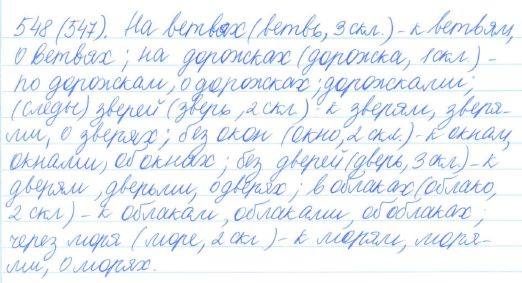 548 (547). На ветвях (ветвь, 3 скл.) - к ветвям,
о ветвях; на дорожках (дорожка, 1 скл.) -
по дорожкам, о дорожках; дорожками;
(следы) зверей (зверь, 2 скл.) - к зверям, зверя-
ми, о зверях; без окон (окно, 2 скл.) - к окнам,
окнами, об окнах; без дверей (дверь, 3 скл.) - к
дверям, дверьми, о дверях; в облаках (облако,
2 скл) - к облакам, облаками, об облаках;
через моря (море, 2 скл.) - к морям, моря-
ми, о морях.